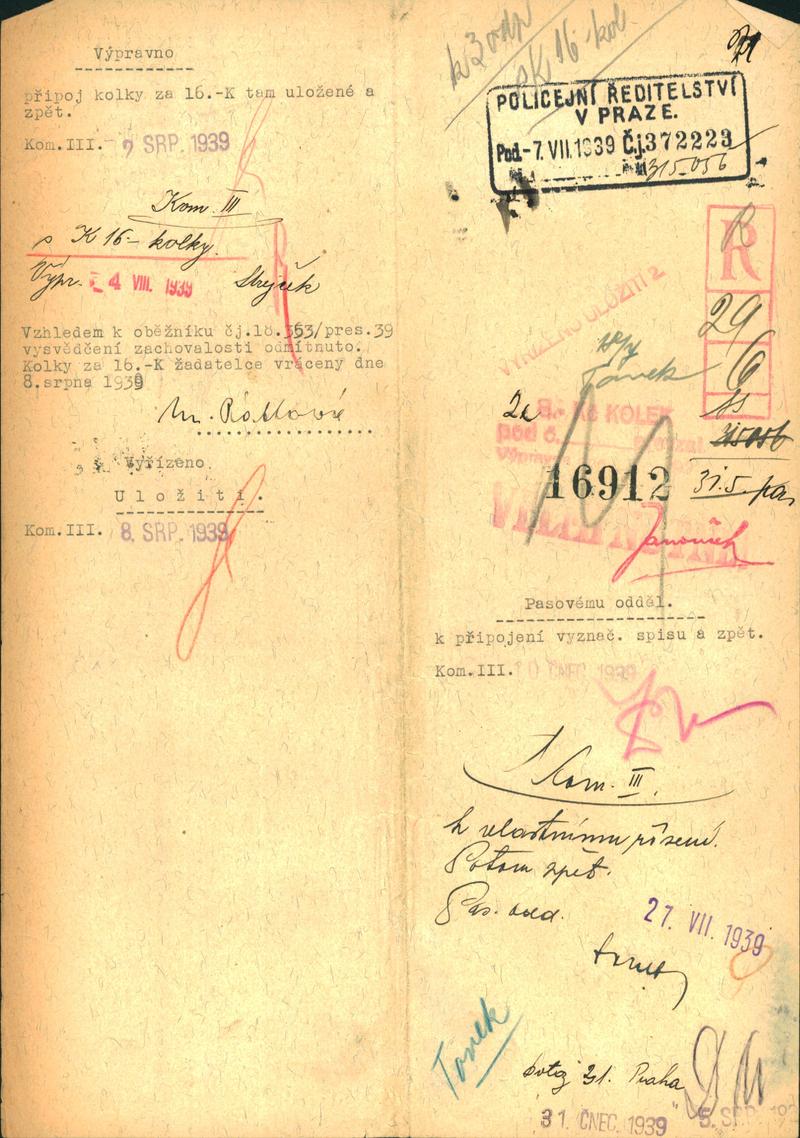 Výpravno
připoj kolky za 16.-K tam uložené a
zpět.
Kom.III. 2 SRP. 1939
Kom III
s K 16- kolky.
Výpr. 4 VIII. 1939 Strejček
Vzhledem k oběžníku čj.18.353/pres.39
vysvědčení zachovalosti odmítnuto.
Kolky za 16.-K žadatelce vráceny dne
8.srpna 1939
Vyřízeno
Uložiti.
Kom.III. 8. SRP. 1939
sk 16-kol
POLICEJNÍ ŘEDITELSTVÍ
V PRAZE.
Pod -7. VII. 1939 Č.j. 372223
315.056
R
R
VYŘÍZENO ULOŽITI 2
29
Tánek
6
Kč KOLEK
pod č.
315056
16912
31.5. pas
VELMI NUTNÉ
Janoušek
Pasovému odděl.
k připojení vyznač. spisu a zpět.
Kom.III. 10 ČNEC. 1939
Kom. III.
k vlastnímu řízení.
Potom zpět.
Pas. odd.
27. VII. 1939
Tanek
31. Praha
31. ČNEC. 1939 5. SRP. 193